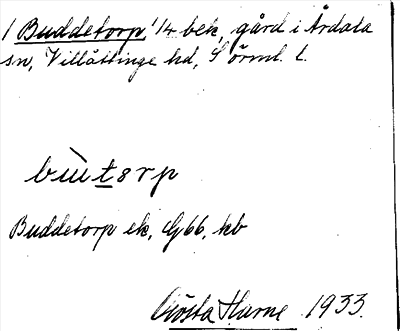 1 Buddetorp, 1/4 bek, gård i Årdala
sn, Villåttinge hd, Sörml. l.
bu̇̀torp
Buddetorp ek, G66, kb
Gösta Harne 1933.